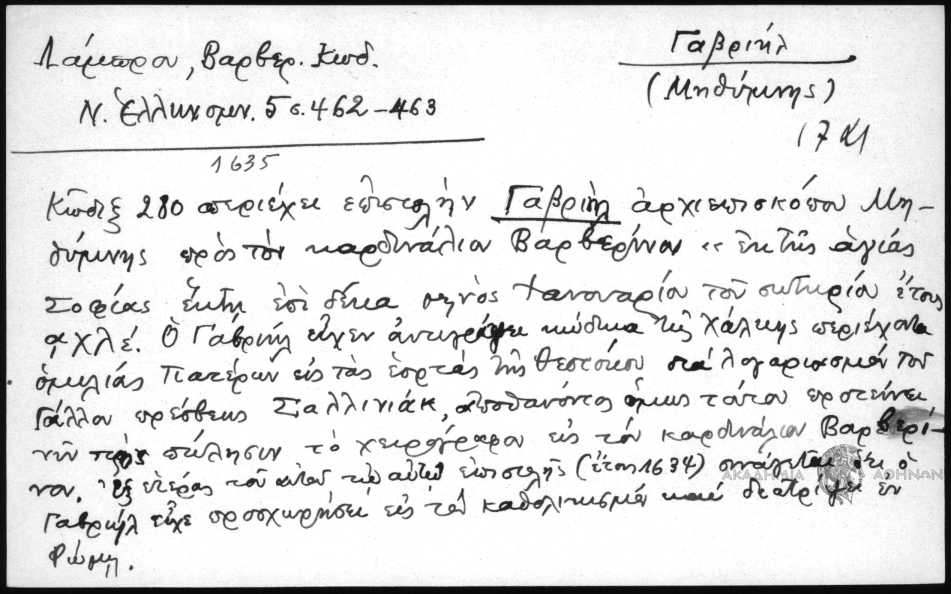 Λάμπρου, Βαρβερ. Κωδ.
Ν. Ἑλληνομν. 5 σ. 462-463
Γαβριήλ
(Μηθύμνης)
1635
Κῶδιξ 280 περιέχει ἐπιστολὴν Γαβριὴλ ἀρχιεπισκόπου Μη-
θύμνης πρὸς τὸν καρδινάλιον Βαρβερῖνον «ἐκ τῆς ἁγίας
Σοφίας ἕκτῃ ἐπὶ δέκα μηνὸς Ἰανουαρίου τοῦ σωτηρίου ἔτους
αχλέ. Ὁ Γαβριὴλ εἶχεν ἀντιγράψει κώδικα τῆς Χάλκης περιέχοντα
ὁμιλίας Πατέρων εἰς τὰς ἑορτὰς τῆς Θεοτόκου διὰ λογαριασμὸν τοῦ
Γάλλου πρέσβεως Σαλλινιάκ, ἀποθανόντος ὅμως τούτου προτείνει
νῦν πρὸς πώλησιν τὸ χειρόγραφον εἰς τὸν καρδινάλιον Βαρβερῖ-
νον. Ἐξ ἑτέρας τοῦ αὐτοῦ ἐπιστολῆς (ἔτους 1634) συνάγεται ὅτι ὁ
Γαβριὴλ εἶχε προσχωρήσει εἰς τὸν καθολικισμὸν καὶ διατρίψει ἐν
Ῥώμῃ.
ΑΚΑΔΗΜΙΑ ΑΘΗΝΩΝ